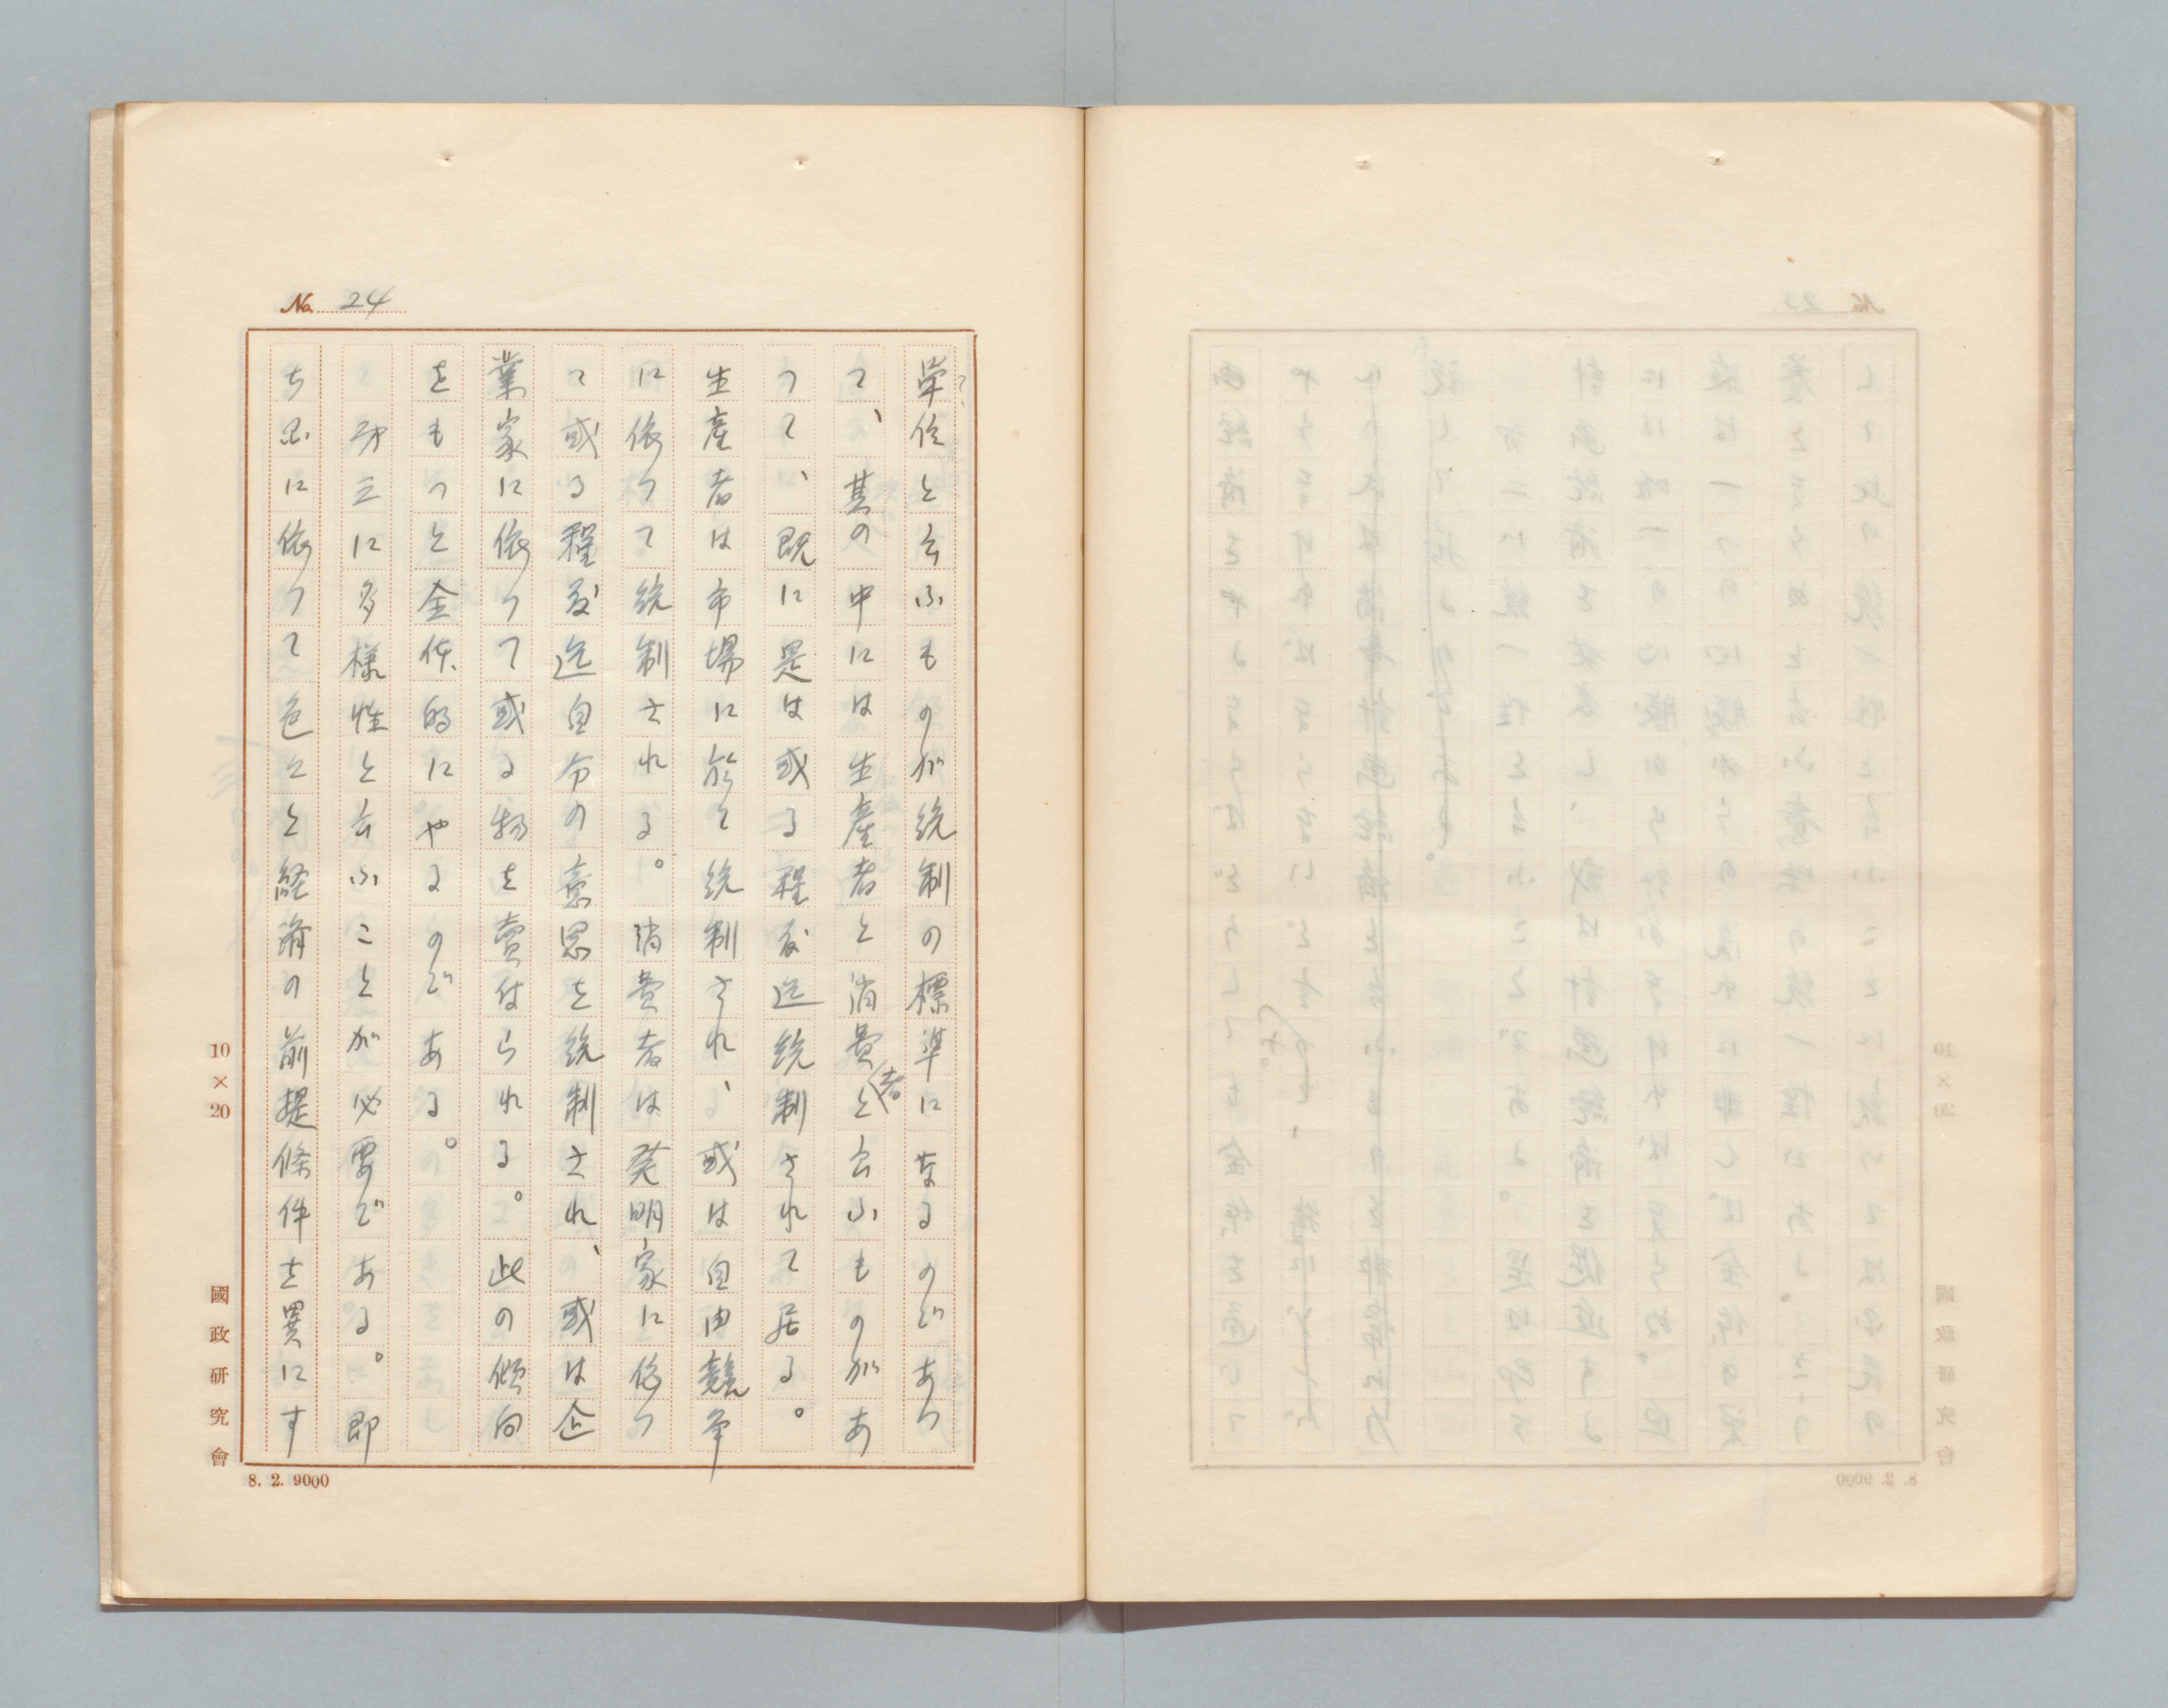 No. 24
単位と云ふものが統制の標準になるのであつ
て、其の中には生産者と消費者と云ふものがあ
つて、既に是は或る程度迄統制されて居る。
生産者は市場に於て統制され、或は自由競争
に依つて統制される。消費者は発明家に依つ
て或る程度迄自分の意思を統制され、或は企
業家に依つて或る物を賣付けられる。此の傾向
をもつと全体的にやるのである。
第三に多様性と云ふことが必要である。即
ち国に依つて色々と経済の前提條件を異にす
10×20
國政研究會
8. 2. 9000